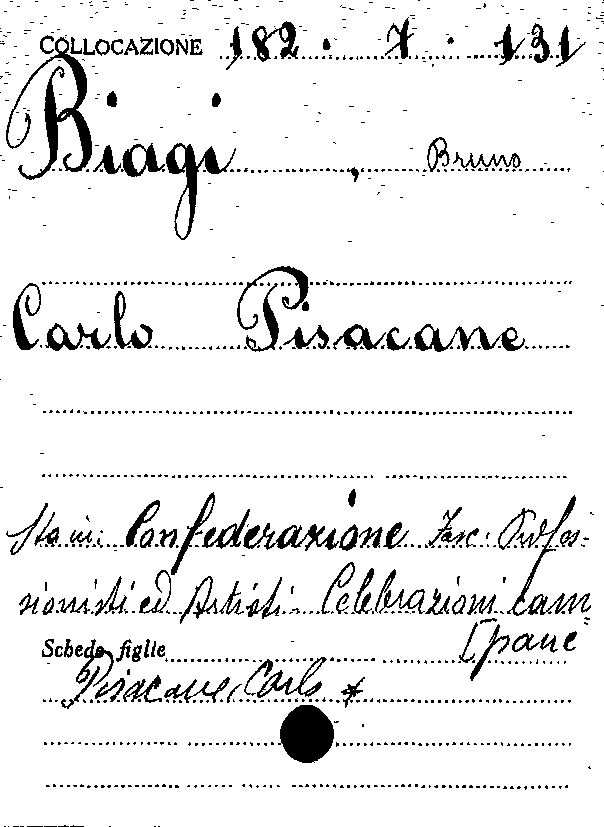 COLLOCAZIONE 182 . 7 . 131
Biagi, Bruno
Carlo Pisacane
Sta in: Confederazione Fasc. Profes-
sionisti ed Artisti - Celebrazioni cam
[pane
Schede figlie
Pisacane, Carlo *